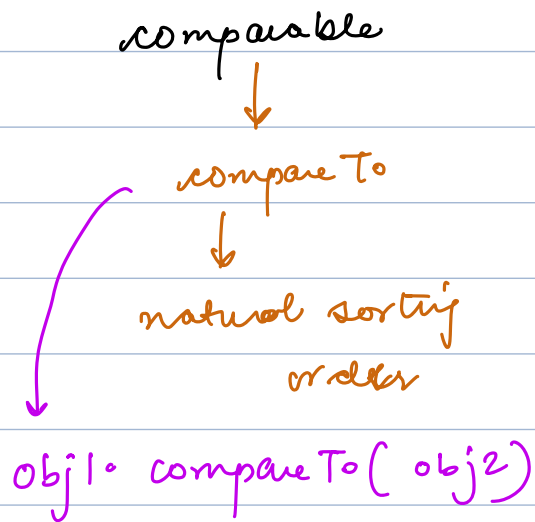 comparable
compareTo
natural sorting
order
obj1. compareTo( obj2)